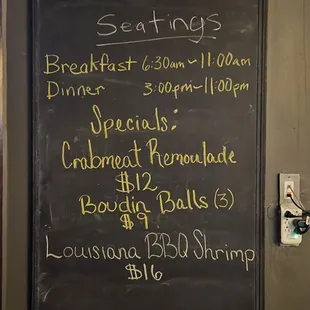 Seatings
Breakfast 6:30am~11:00am
Dinner 3:00pm~11:00pm
Specials:
Crabmeat Remoulade
$12
Boudin Balls (3)
$9
Louisiana BBQ Shrimp
$16